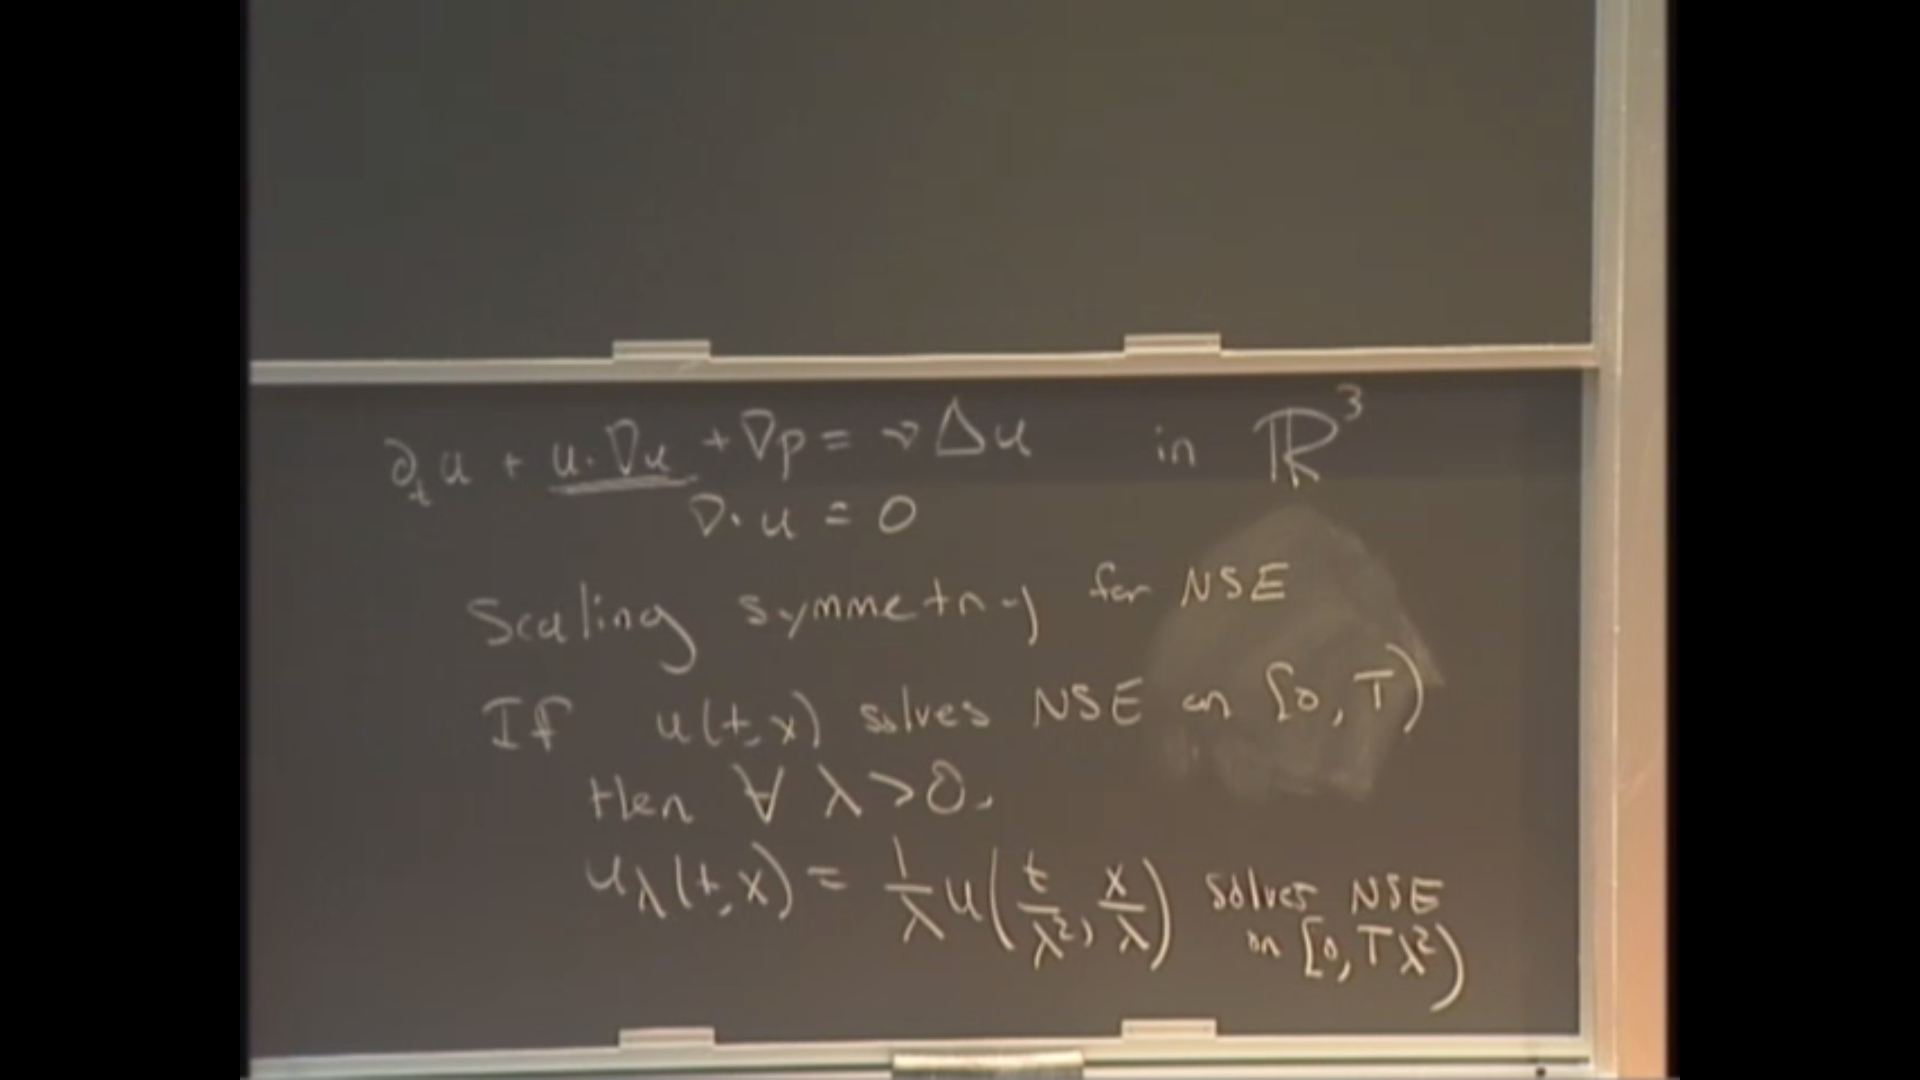 ∂_t u + u·∇u + ∇p = ν Δu in ℝ³
∇·u = 0
Scaling symmetry for NSE
If u(t,x) solves NSE on [0,T)
then ∀ λ>0,
u_λ(t,x) = 1/λ u(t/λ², x/λ) solves NSE
on [0,Tλ²)